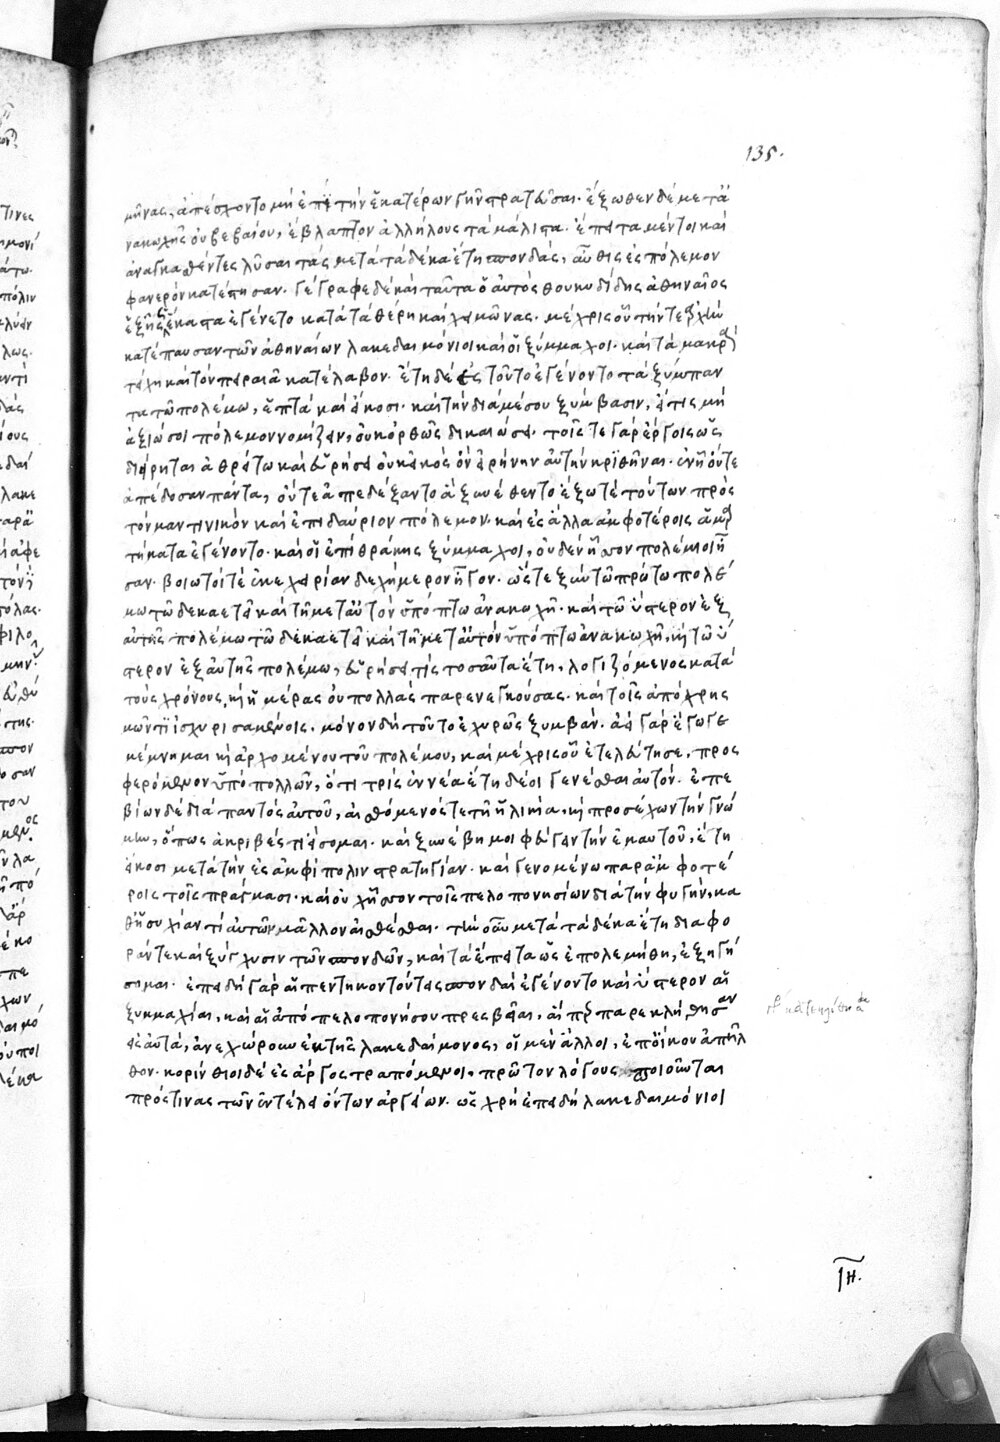 135.
μῆνας, ἀπέσχοντο μὴ ἐπὶ τὴν ἑκατέρων γῆν στρατεῦσαι. ἔξωθεν δὲ μετὰ
νακωχῆς οὐ βεβαίου, ἔβλαπτον ἀλλήλους τὰ μάλιστα. ἔπειτα μέντοι καὶ
ἀναγκασθέντες λῦσαι τὰς μετὰ τὰ δέκα ἔτη σπονδάς, αὖθις ἐς πόλεμον
φανερὸν κατέστησαν. γέγραφε δὲ καὶ ταῦτα ὁ αὐτὸς θουκυδίδης ἀθηναῖος
ἑξῆς ὡς ἕκαστα ἐγένετο κατὰ τὰ θέρη καὶ χειμῶνας. μέχρις οὗ τήν τε ἀρχὴν
κατέπαυσαν τῶν ἀθηναίων λακεδαιμόνιοι καὶ οἱ ξύμμαχοι. καὶ τὰ μακρὰ
τείχη καὶ τὸν πειραιᾶ κατέλαβον. ἔτη δὲ ἐς τοῦτο ἐγένοντο τὰ ξύμπαντα
τω πολέμω, ἑπτὰ καὶ εἴκοσι. καὶ τὴν διὰ μέσου ξύμβασιν, εἴ τις μὴ
ἀξιώσοι πόλεμον νομίζειν, οὐκ ὀρθῶς δικαιώσει. τοῖς τε γὰρ ἔργοις ὡς
διῄρηται ἀθρείτω καὶ εὑρήσει οὐκ εἰκὸς ὂν εἰρήνην αὐτὴν κριθῆναι. ἐν ᾗ οὔτε
ἀπέδοσαν πάντα, οὔτε ἀπεδέξαντο ἃ ξυνέθεντο ἔξω τε τούτων πρὸς
τὸν μαντινικὸν καὶ ἐπιδαύριον πόλεμον. καὶ ἐς ἄλλα ἀμφοτέροις ἁμαρ
τήματα ἐγένοντο. καὶ οἱ ἐπὶ θράκης ξύμμαχοι, οὐδὲν ἧσσον πολέμιοι ἦ
σαν. βοιωτοί τε ἐκεχειρίαν δεχήμερον ἦγον. ὥστε ξὺν τῶ πρώτω πολέ
μω τῶ δεκαετεῖ καὶ τῇ μετ αὐτὸν ὑπόπτω ἀνακωχῇ. καὶ τῶ ὕστερον ἐξ
αὐτῆς πολέμω τῶ δεκαετεῖ καὶ τῇ μετ αὐτὸν ὑπόπτω ἀνακωχῇ, καὶ τῶ ὕ
στερον ἐξ αὐτῆς πολέμω, εὑρήσει τίς τοσαῦτα ἔτη, λογιζόμενος κατὰ
τοὺς χρόνους, καὶ ἡμέρας οὐ πολλὰς παρενεγκούσας. καὶ τοῖς ἀπὸ χρης
μῶν τι ἰσχυρισαμένοις. μόνον δὴ τοῦτο ἐχυρῶς ξυμβάν. ἀεὶ γὰρ ἔγωγε
μέμνημαι καὶ ἀρχομένου τοῦ πολέμου, καὶ μέχρις οὗ ἐτελεύτησε, προς
φερόμενον ὑπὸ πολλῶν, ὅτι τρὶς ἐννέα ἔτη δέοι γενέσθαι αὐτόν. ἐπε
βίων δὲ διὰ παντὸς αὐτοῦ, αἰσθόμενός τε τῇ ἡλικία, καὶ προσέχων τὴν γνώ
μην, ὅπως ἀκριβές τι εἴσομαι. καὶ ξυνέβη μοι φεύγειν τὴν ἐμαυτοῦ, ἔτη
εἴκοσι μετὰ τὴν ἐς ἀμφίπολιν στρατηγίαν. καὶ γενομένω παρ ἀμφοτέ
ροις τοῖς πράγμασι. καὶ οὐχ ἧσσον τοῖς πελοποννησίων διὰ τὴν φυγὴν, κα
θ ἡσυχίαν τί αὐτῶν μᾶλλον αἰσθέσθαι. τὴν οὖν μετὰ τὰ δέκα ἔτη διαφο
ράν τε καὶ ξύγχυσιν τῶν σπονδῶν, καὶ τὰ ἔπειτα ὡς ἐπολεμήθη, ἐξηγή
σομαι. ἐπειδὴ γὰρ αἱ πεντηκοντούτεις σπονδαὶ ἐγένοντο καὶ ὕστερον αἱ
ξυμμαχίαι, καὶ αἱ ἀπὸ πελοπονήσου πρεσβεῖαι, αἵπερ παρεκλήθησαν
ἐς αὐτά, ἀνεχώρουν ἐκ τῆς λακεδαίμονος, οἱ μὲν ἄλλοι, ἐπ οἴκου ἀπῆλ
θον. κορίνθιοι δὲ ἐς ἄργος τραπόμενοι, πρῶτον λόγους ποιοῦνται
πρός τινας τῶν ἐν τέλει ὄντων ἀργείων. ὡς χρὴ ἐπειδὴ λακεδαιμόνιοι
ιη.